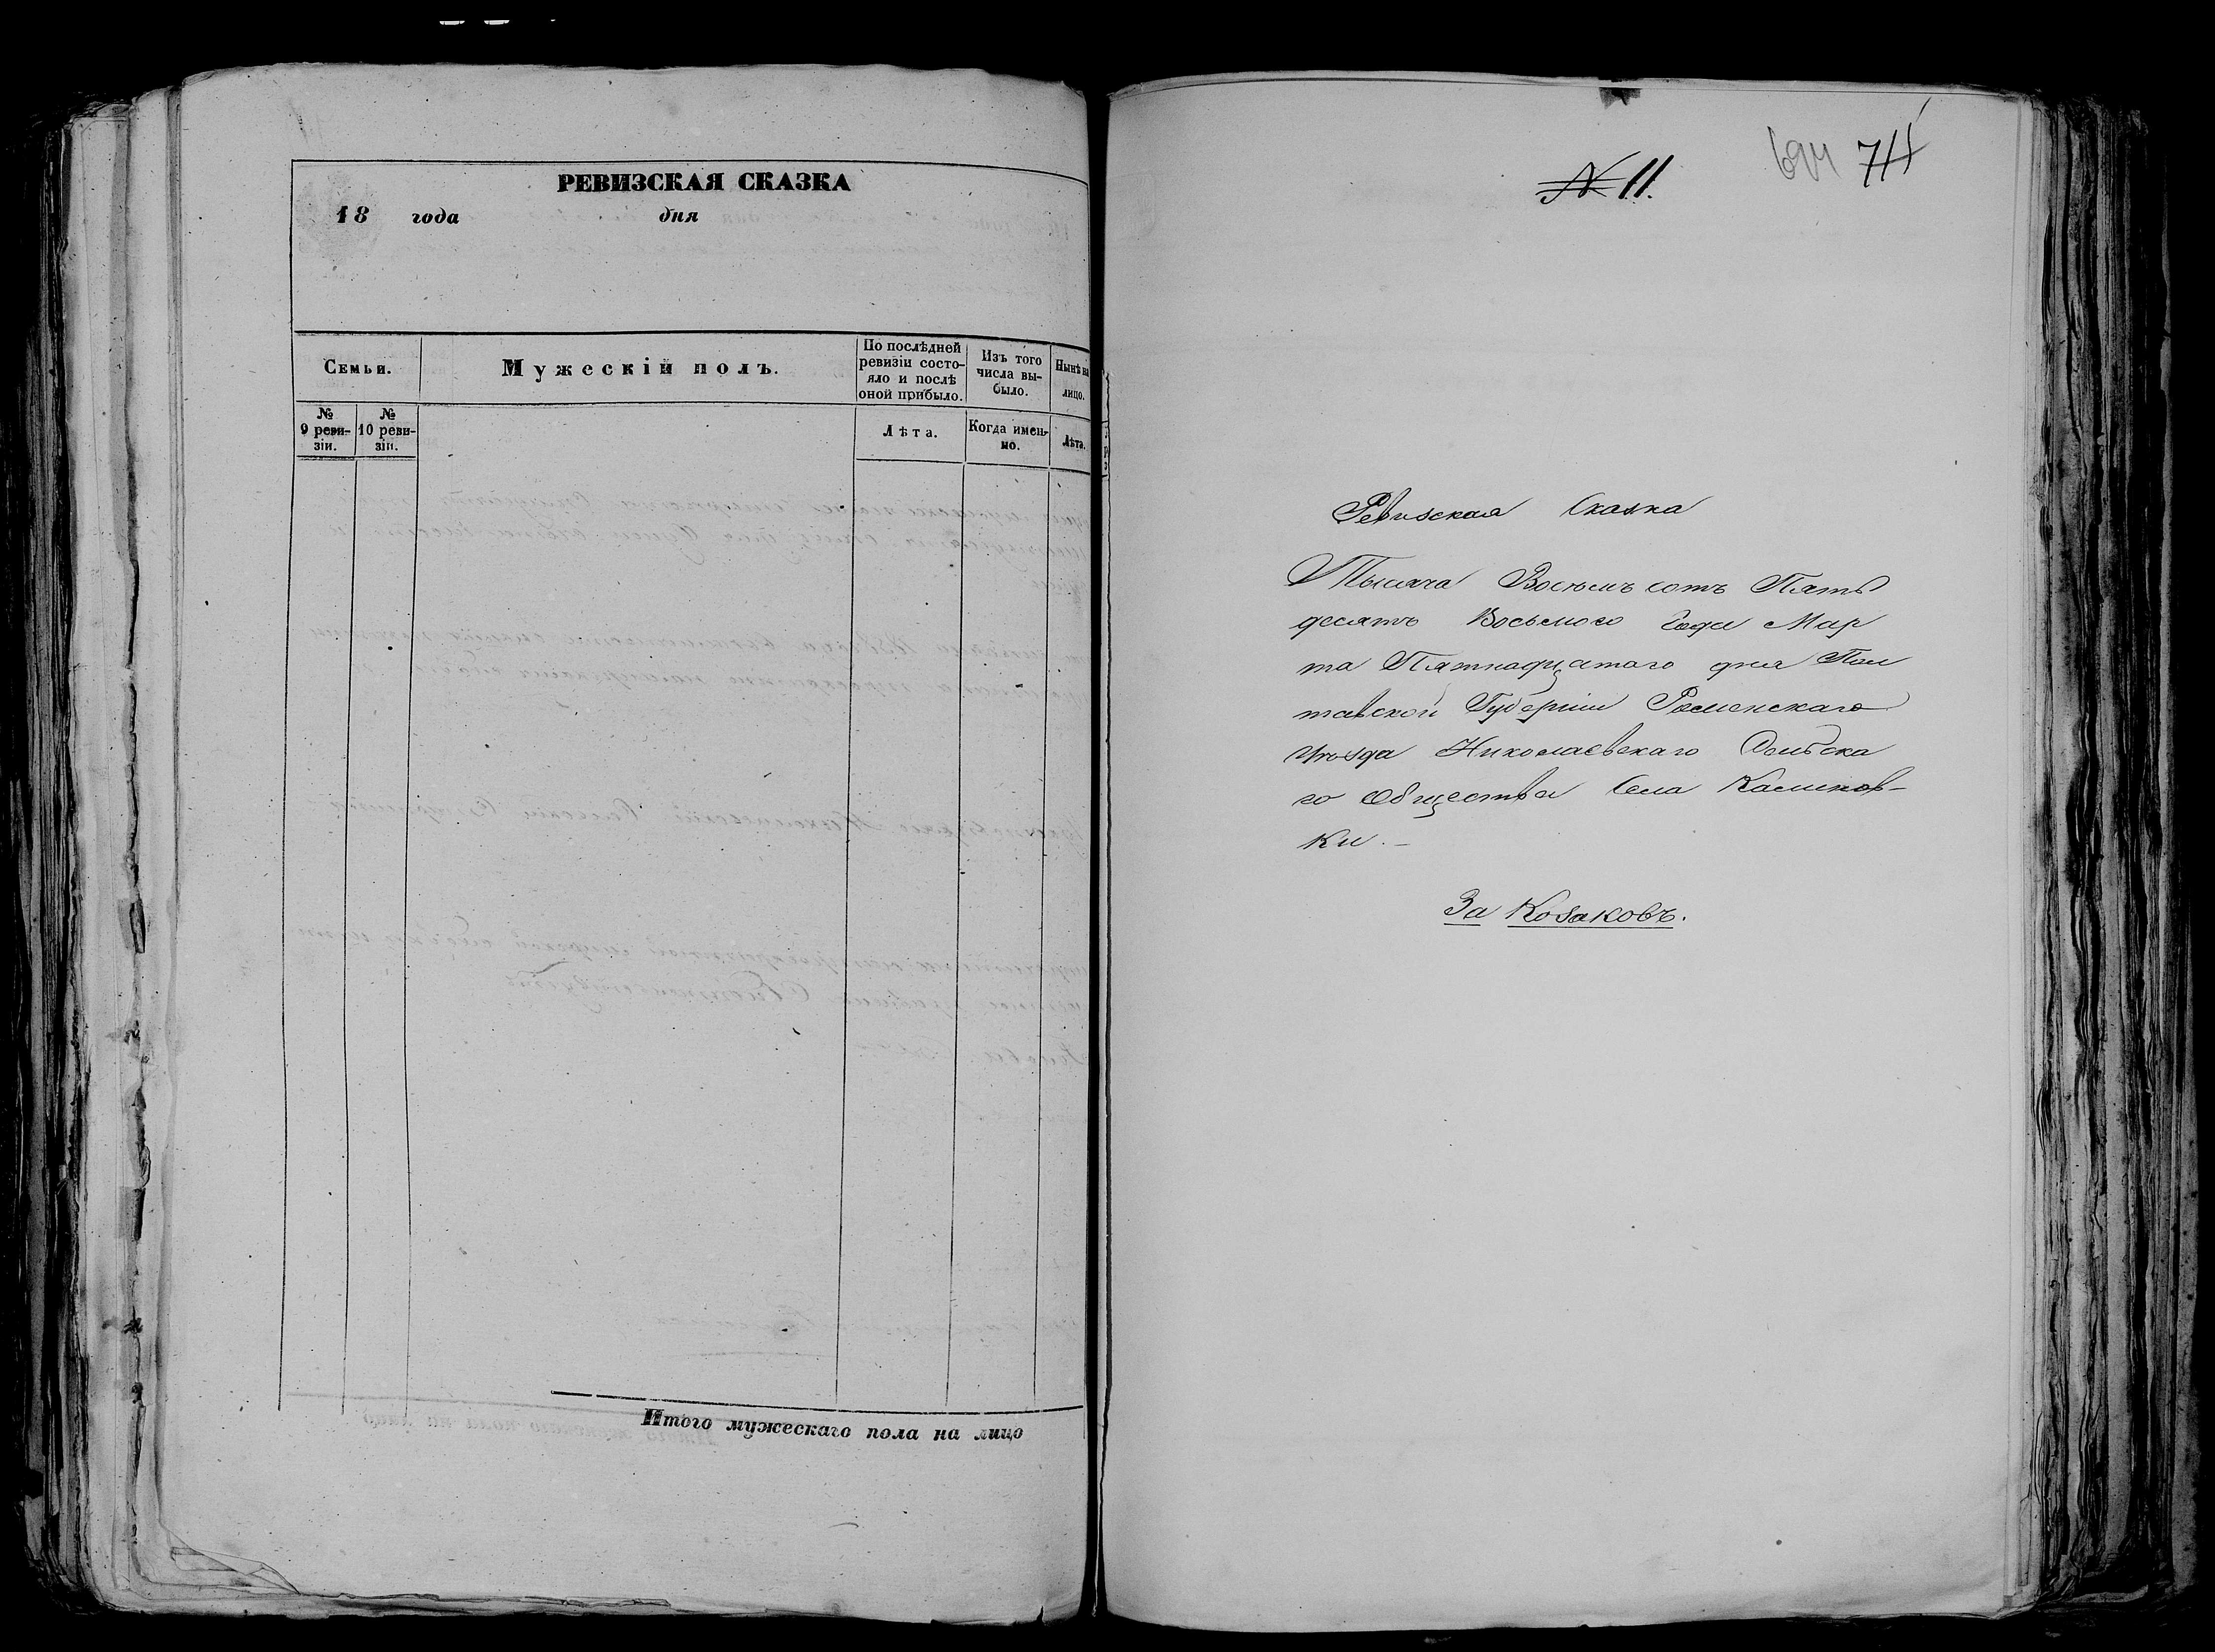 РЕВИЗСКАЯ СКАЗКА
18 года дня
Семьи.
Мужескій полъ.
По послѣдней
ревизіи состо-
яло и послѣ
оной прибыло.
Изъ того
числа вы-
было.
Нынѣ на
лицо.
№
9 реви-
зіи.
№
10 реви-
зіи.
Лѣта.
Когда имен-
но.
Лѣта.
Итого мужескаго пола на лицо
№ 11.
694
Ревизская Сказка
Тысяча Восемъ сотъ Пять
десятъ Восьмого Года Мар
та Пятнадцатаго дня Пол
тавской Губерніи Роменскаго
Уѣзда Николаевскаго Сельска
го Общества Села
ки.–
За Козаковъ.